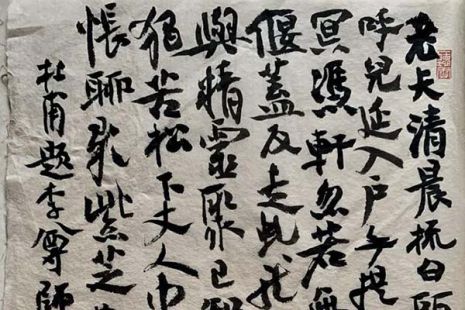 老夫清晨梳白
呼兒延入户手提
冥馮軒忽若無
偃蓋反走虬龍
與精靈聚已
獨苦松下丈人巾
悵聊歌紫芝
杜甫題李尊師